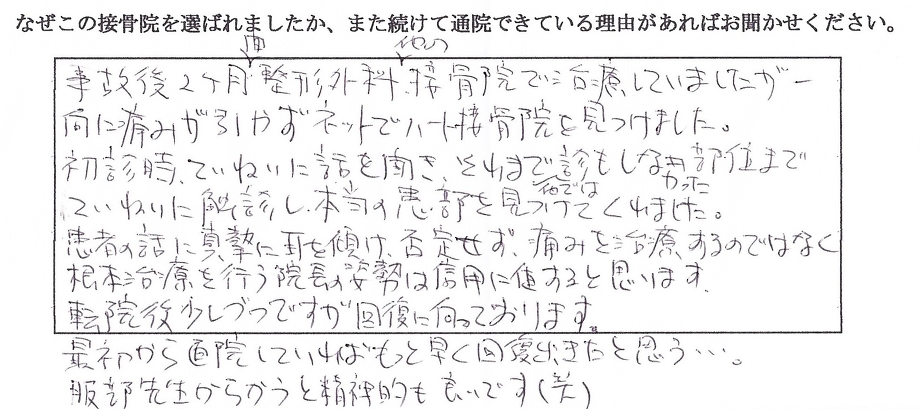 なぜこの接骨院を選ばれましたか、また続けて通院できている理由があればお聞かせください。
事故後2ヶ月間整形外科、他の接骨院で治療していましたが一
向に痛みが引かずネットでハート接骨院を見つけました。
初診時、ていねいに話を聞き、それまで診もしなかった部位まで
ていねいに触診し、他では本当の患部を見つけてくれました。
患者の話に真摯に耳を傾け、否定せず、痛みを治療するのではなく
根本治療を行う院長の姿勢は信用に値すると思います。
転院後少しづつですが回復に向っております。
最初から通院していればもっと早く回復出きたと思う…。
服部先生からかうと精神的も良いです(笑)